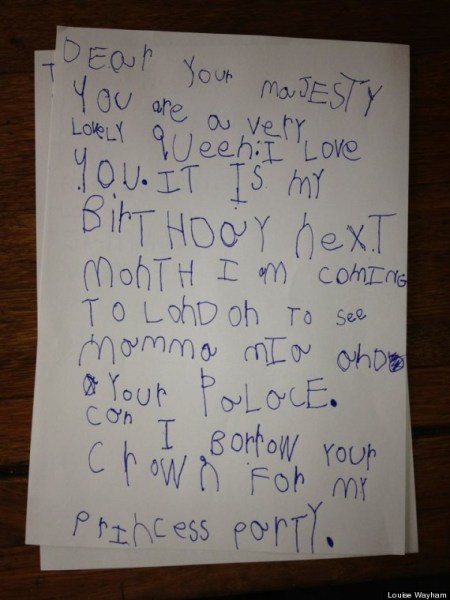 DEar Your maJESTY
YOU are a very
LOVELY QUEEN:I LOVE
YOU.IT IS MY
BIRTHDAY NEXT
MONTH I am COMING
TO LONDON TO See
mamma mIa anD
Your PaLaCE.
can I BORROW YOUR
CrOWN FOR MY
PrINCESS ParTY.
Louise Wayham